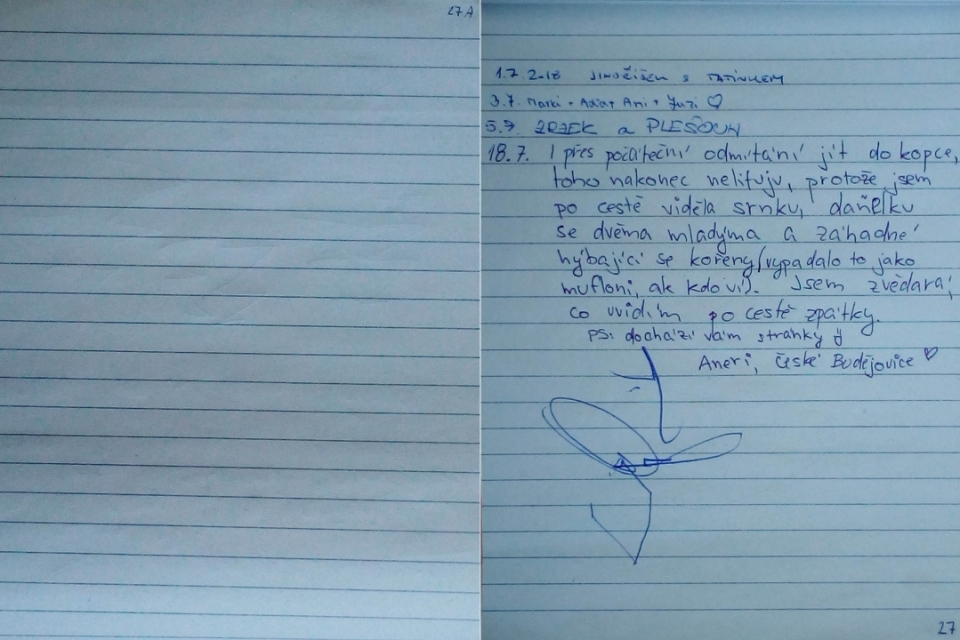 27A
1.7. 2018 JINOČIŠEM S TATÍNKEM
3.7. Marki + Ada + Ani + Yuzi ♡
5.7. ZRZEK a PLEŠOUN
18.7. I přes počáteční odmítání jít do kopce,
toho nakonec nelituju, protože jsem
po cestě viděla srnku, daňelku
se dvěma mladýma a záhadné
hýbající se kořeny (vypadalo to jako
mufloni, ak kdo ví). Jsem zvědará,
co uvidím po cestě zpátky.
PS: dochází vám stránky
Aneri, České Budějovice ♡
27